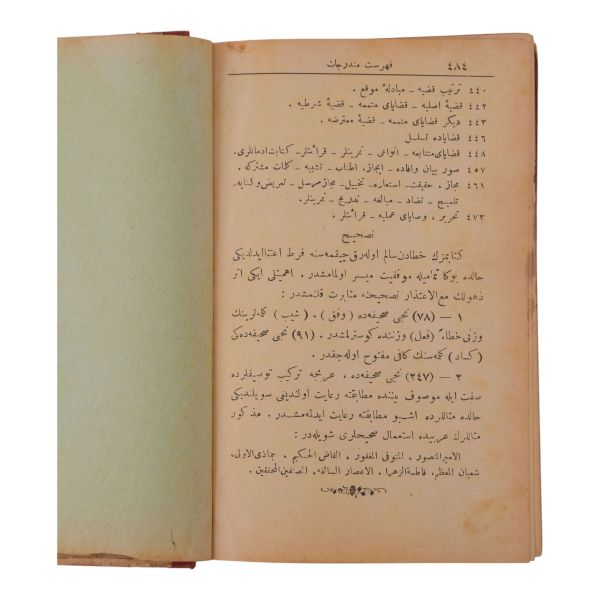 ٤٨٤ فهرست مندرجات
٤٤٠ ترتيب قضيه ـ مبادلهٔ موقع .
٤٤٢ قضيهٔ اصليه ـ قضاياى متممه ـ قضيهٔ شرطيه .
٤٤٣ ديكر قضاياى متممه ـ قضيهٔ معترضه .
٤٤٦ قضاياده تسلسل
٤٤٨ قضاياى متتابعه ـ انواعى ـ تمرينلر ـ قرائتلر ـ كتابت ادمانلرى.
٤٥٧ صور بيان وافاده ـ ايجاز، اطناب ـ تشبيه ـ كلمات مشتركه .
٤٦١ مجاز ، حقيقت ـ استعاره ـ تخييل ـ مجاز مرسل ـ تعريض وكنايه ـ
تلميح ـ تضاد ـ مبالغه ـ تدريج ـ تمرينلر.
٤٧٣ تحرير ، وصاياى عمليه ـ قرائتلر .
تصحيح
كتابمزك خطادن سالم اوله رق چيقمه سنه فرط اعتنا ايدلديكى
حالده بوكا تماميله موفقيت ميسر اولمامشدر . اهميتلى ايكى اثر
ذهولك مع الاعتذار تصحيحنه مثابرت قلنمشدر :
١ — (٧٨) نجى صحيفه ده ( وفق ) . ( شيب ) كلمه لرينك
وزنى خطاءً (فعل) وزننده كوسترلمشدر . (٩١) نجى صحيفه ده كى
(كساد) كلمه سنك كافى مفتوح اوله جقدر .
٢ — (٢٤٧) نجى صحيفه ده ، عربجه تركيب توصيفلرده
صفت ايله موصوف بيننده مطابقته رعايت اولنديغى سويلنديكى
حالده مثاللرده اشبو مطابقته رعايت ايدلمه مشدر . مذكور
مثاللرك عربيده استعمال صحيحلرى شويله در :
الامير المنصور ، المتوفى المغفور ، القاض الحكيم ، جماذى الاولى،
شعبان المعظم، فاطمة الزهرا ، الاعصار السالفه ، المصنفين المحققين .